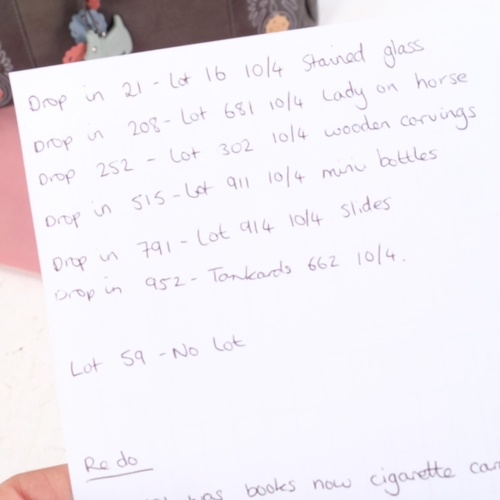 Drop in 21 - Lot 16 10/4 Stained glass
Drop in 208 - Lot 681 10/4 Lady on horse
Drop 252 - Lot 302 10/4 wooden carvings
Drop in 515 - Lot 911 10/4 mini bottles
Drop in 791 - Lot 914 10/4 slides
Drop in 952 - Tankards 662 10/4.
Lot 59 - No Lot
Re do
was books now cigarette